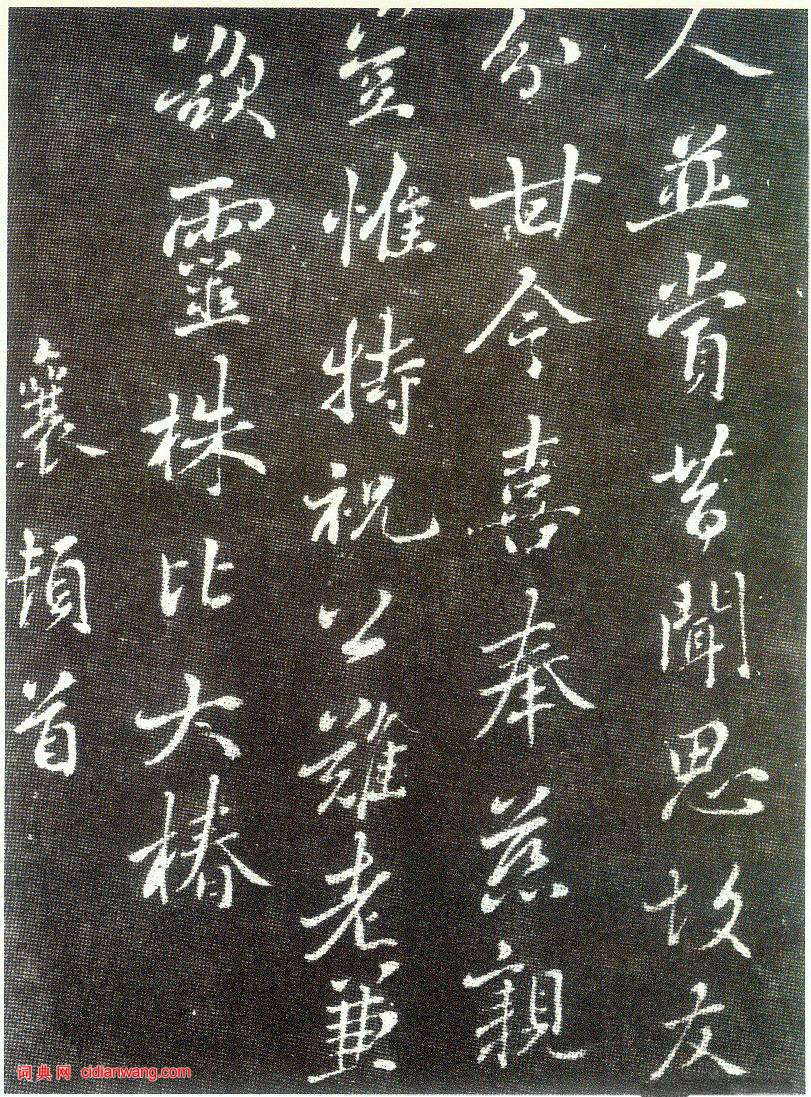 人並賞昔聞思故友
分甘今喜奉慈親
豈惟特祝公難老兼
欲靈株比大椿
襄頓首
词典网 cidianwang.com